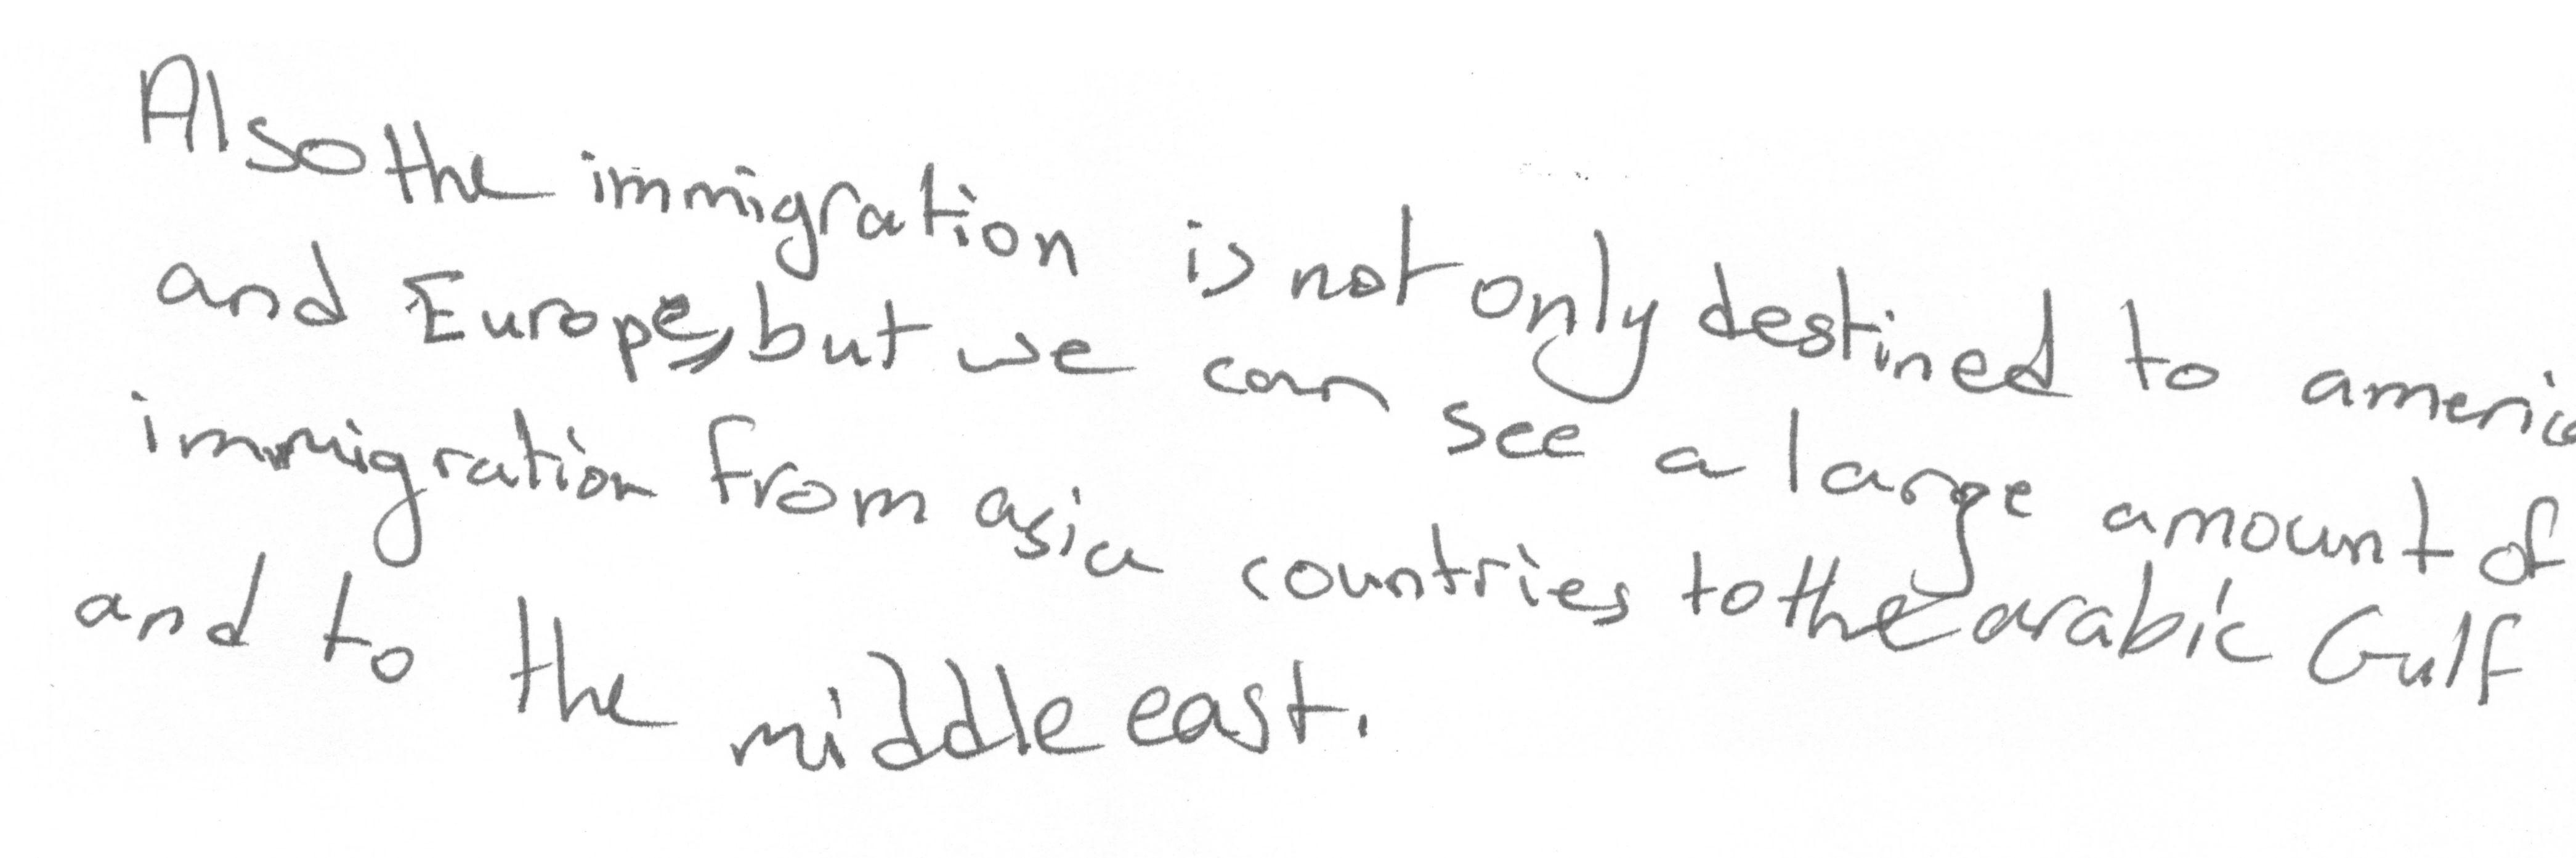 Also the immigration is not only destined to america
and Europe, but we can see a large amount of
immigration from asia countries to the arabic Gulf
and to the middle east.